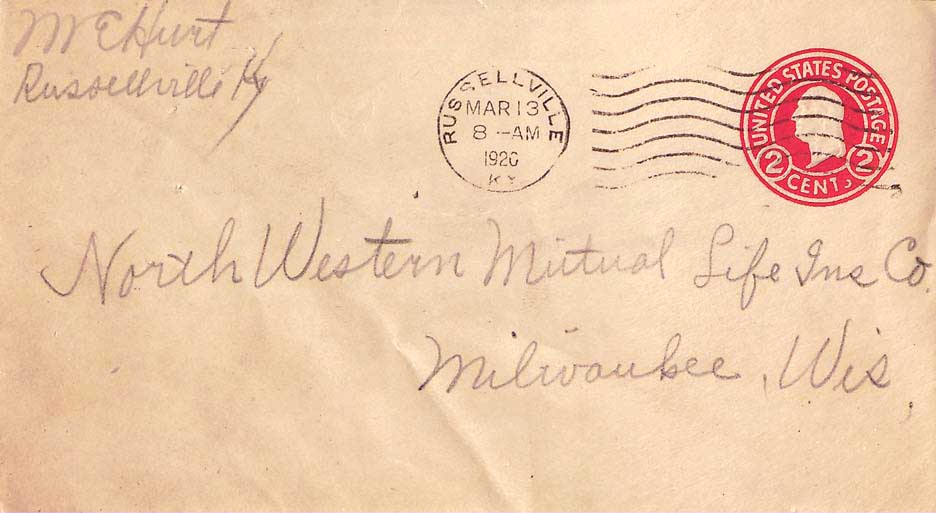 M E Hurt
Russellville Ky
RUSSELLVILLE
MAR 13
8 -AM
1920
KY
UNITED STATES POSTAGE
2 CENTS 2
North Western Mutual Life Ins Co.
Milwaukee, Wis